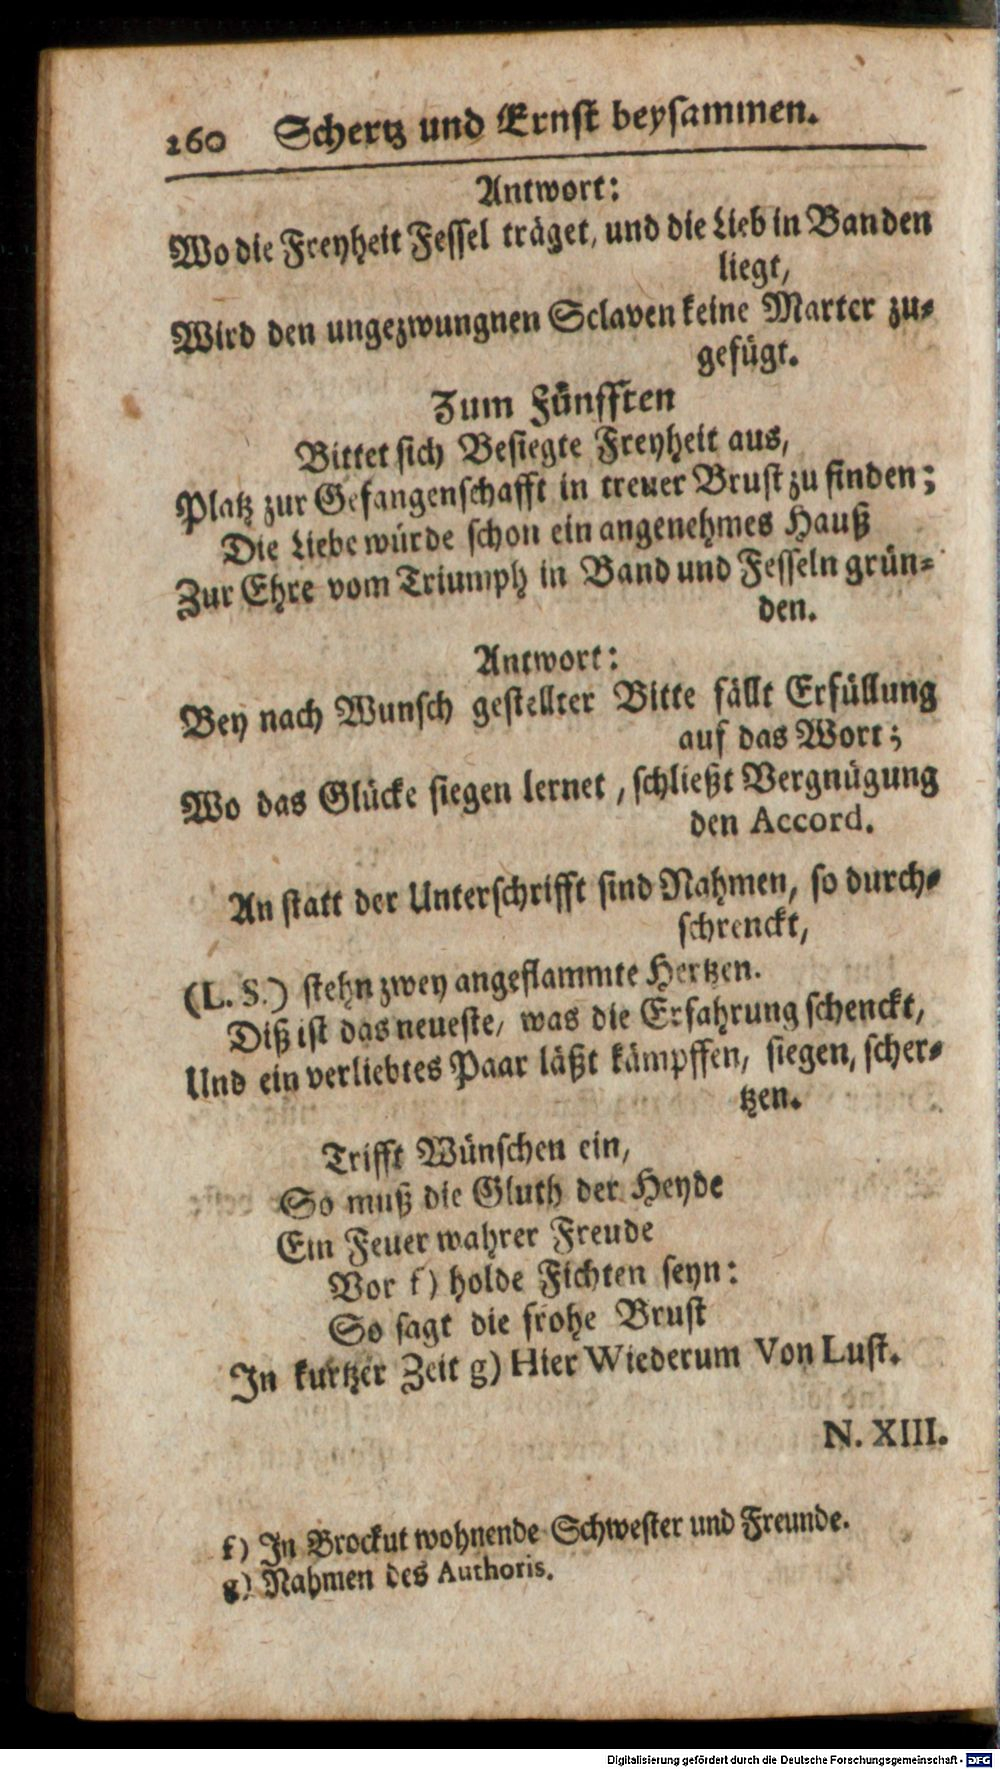 160 Schertz und Ernst beysammen.
Antwort:
Wo die Freyheit Fessel träget, und die Lieb in Banden
liegt,
Wird den ungezwungnen Sclaven keine Marter zu-
gefügt.
Zum Fünfften
Bittet sich Besiegte Freyheit aus,
Platz zur Gefangenschafft in treuer Brust zu finden;
Die Liebe würde schon ein angenehmes Hauß
Zur Ehre vom Triumph in Band und Fesseln grün-
den.
Antwort:
Bey nach Wunsch gestellter Bitte fällt Erfüllung
auf das Wort;
Wo das Glücke siegen lernet, schließt Vergnügung
den Accord.
An statt der Unterschrifft sind Nahmen, so durch-
schrenckt,
(L. S.) stehn zwey angeflammte Hertzen.
Diß ist das neueste, was die Erfahrung schenckt,
Und ein verliebtes Paar läßt kämpffen, siegen, scher-
tzen.
Trifft Wünschen ein,
So muß die Gluth der Heyde
Ein Feuer wahrer Freude
Vor f) holde Fichten seyn:
So sagt die frohe Brust
In kurtzer Zeit g) Hier Wiederum Von Lust.
N. XIII.
f) In Brockut wohnende Schwester und Freunde.
g) Nahmen des Authoris.
Digitalisierung gefördert durch die Deutsche Forschungsgemeinschaft - DFG